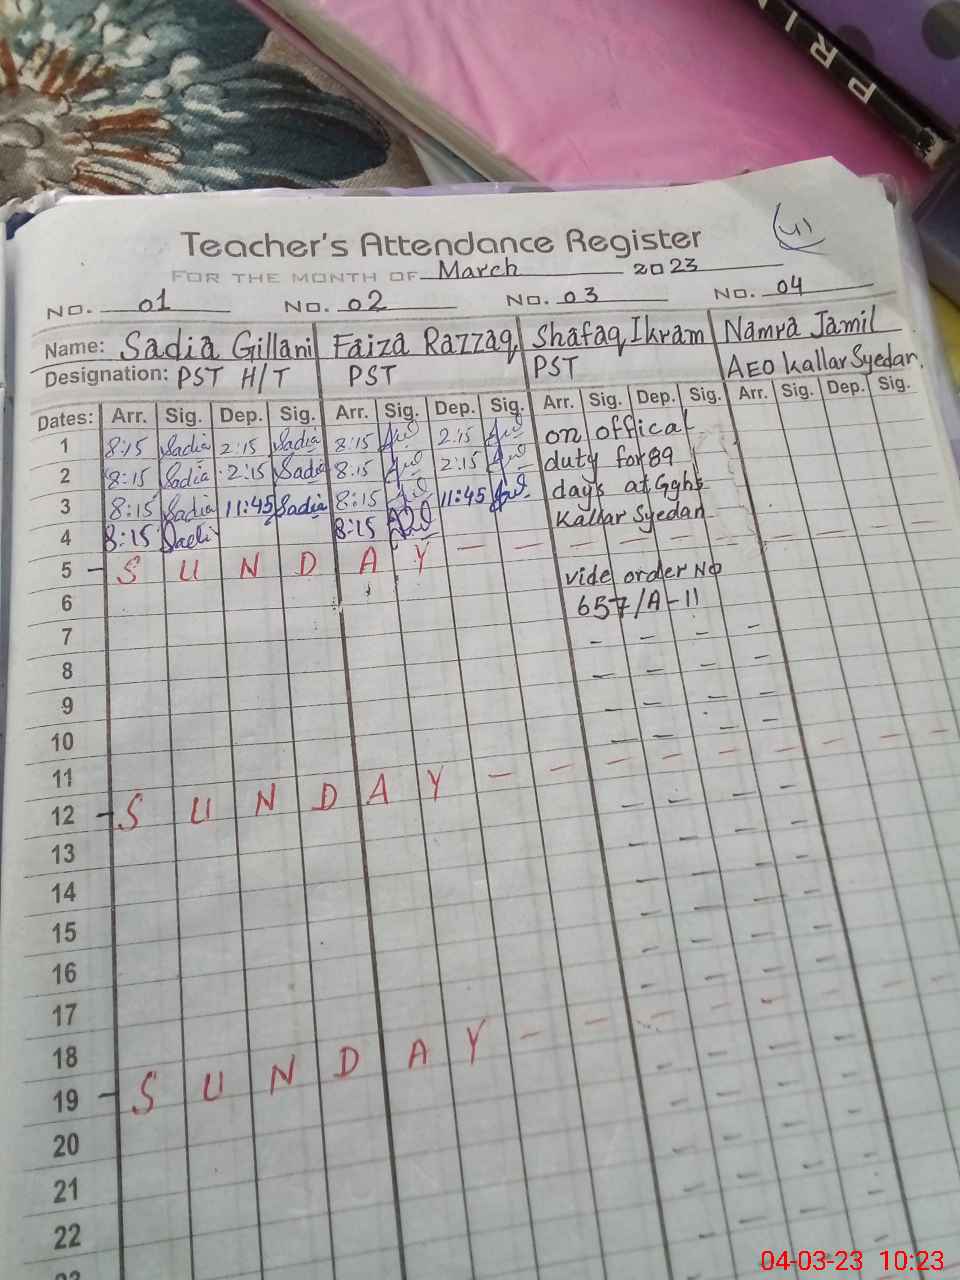 PRIM
41
Teacher's Attendance Register
FOR THE MONTH OF March 2023
NO. 01 NO. 02 NO. 03 NO. 04
Name: Sadia Gillani Faiza Razzaq Shafaq Ikram Namra Jamil
Designation: PST H/T PST PST AEO Kallar Syedan.
Dates: Arr. Sig. Dep. Sig. Arr. Sig. Dep. Sig. Arr. Sig. Dep. Sig. Arr. Sig. Dep. Sig.
1 8:15 Sadia 2:15 Sadia 8:15 2:15 on offical
2 8:15 Sadia 2:15 Sadia 8:15 2:15 duty for 89
3 8:15 Sadia 11:45 Sadia 8:15 11:45 days at Gghs
4 8:15 Sadi 8:15 Kallar Syedan
5 - S U N D A Y - - - - - - - - - -
6 vide order No
657/A-11
7 - - - -
8 - - - -
9 - - - -
10 - - - -
11
12 - S U N D A Y - - - - - - - - -
13
14
15
16
17
18
19 - S U N D A Y - - - - - - -
20
21
22
23
04-03-23 10:23